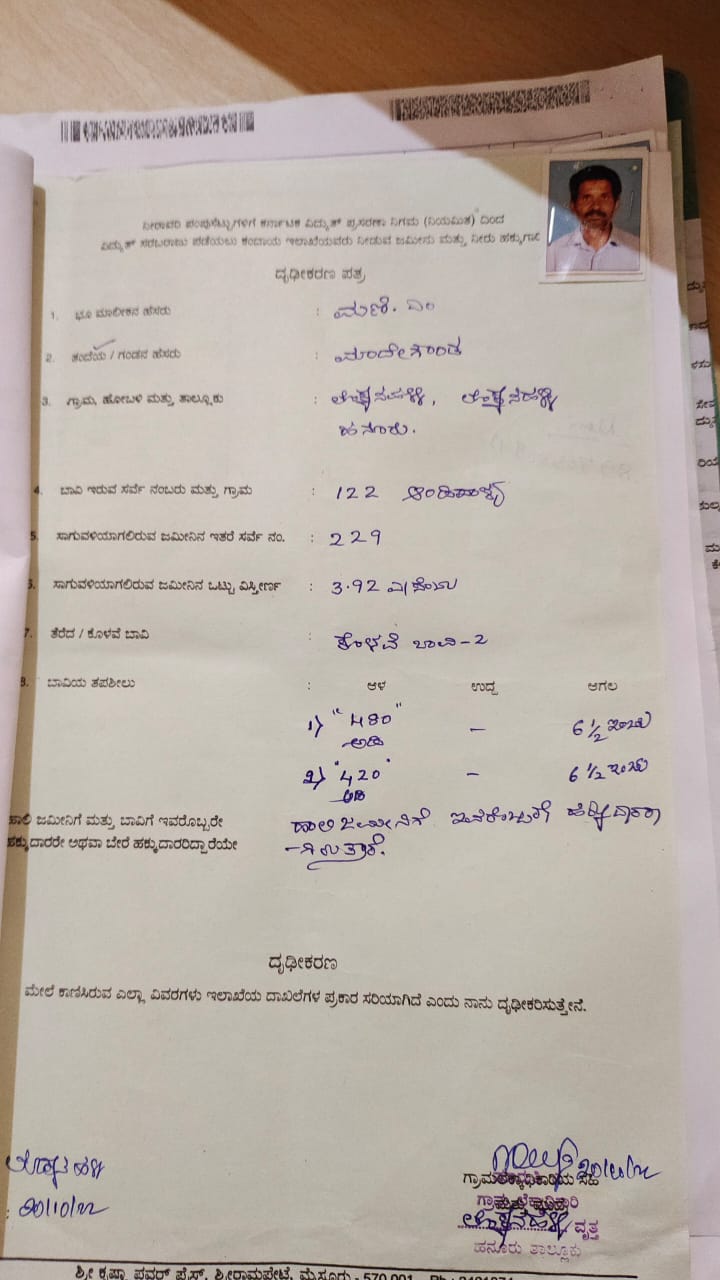 ನೀರಾವರಿ ಪಂಪುಸೆಟ್ಟುಗಳಿಗೆ ಕರ್ನಾಟಕ ವಿದ್ಯುತ್ ಪ್ರಸರಣಾ ನಿಗಮ (ನಿಯಮಿತ) ದಿಂದ
ವಿದ್ಯುತ್ ಸರಬರಾಜು ಪಡೆಯಲು ಕಂದಾಯ ಇಲಾಖೆಯವರು ನೀಡುವ ಜಮೀನು ಮತ್ತು ನೀರು ಹಕ್ಕುಗಾರಿ
ದೃಢೀಕರಣ ಪತ್ರ
1. ಭೂ ಮಾಲೀಕನ ಹೆಸರು : ಮಣಿ. ಎಂ
2. ತಂದೆಯ / ಗಂಡನ ಹೆಸರು : ಮಾದೇಗೌಂಡ
3. ಗ್ರಾಮ, ಹೋಬಳಿ ಮತ್ತು ತಾಲ್ಲೂಕು : ಲೊಕ್ಕನಹಳ್ಳಿ, ಲೊಕ್ಕನಹಳ್ಳಿ
ಹನೂರು.
4. ಬಾವಿ ಇರುವ ಸರ್ವೆ ನಂಬರು ಮತ್ತು ಗ್ರಾಮ : 122
5. ಸಾಗುವಳಿಯಾಗಲಿರುವ ಜಮೀನಿನ ಇತರೆ ಸರ್ವೆ ನಂ. : 229
6. ಸಾಗುವಳಿಯಾಗಲಿರುವ ಜಮೀನಿನ ಒಟ್ಟು ವಿಸ್ತೀರ್ಣ : 3.92 ಎ/ಸೆಂಟು
7. ತೆರೆದ / ಕೊಳವೆ ಬಾವಿ : ಕೊಳವೆ ಬಾವಿ - 2
8. ಬಾವಿಯ ತಪಶೀಲು : ಆಳ ಉದ್ದ ಅಗಲ
1) "480" - 6 1/2 ಇಂಚು
ಅಡಿ
2) "420" - 6 1/2 ಇಂಚು
ಅಡಿ
ಹಾಲಿ ಜಮೀನಿಗೆ ಮತ್ತು ಬಾವಿಗೆ ಇವರೊಬ್ಬರೇ ಹಾಲಿ ಜಮೀನಿಗೆ ಇವರೊಬ್ಬರೇ ಹಕ್ಕುದಾರರಾ
ಹಕ್ಕುದಾರರೇ ಅಥವಾ ಬೇರೆ ಹಕ್ಕುದಾರರಿದ್ದಾರೆಯೇ -ಗಿರುತ್ತಾರೆ.
ದೃಢೀಕರಣ
ಮೇಲೆ ಕಾಣಿಸಿರುವ ಎಲ್ಲಾ ವಿವರಗಳು ಇಲಾಖೆಯ ದಾಖಲೆಗಳ ಪ್ರಕಾರ ಸರಿಯಾಗಿದೆ ಎಂದು ನಾನು ದೃಢೀಕರಿಸುತ್ತೇನೆ.
ಲೊಕ್ಕನಹಳ್ಳಿ
: 20/10/22
20/10/22
ಲೊಕ್ಕನಹಳ್ಳಿ ವೃತ್ತ
ಹನೂರು ತಾಲ್ಲೂಕು
ಶ್ರೀ ಕೃಷ್ಣಾ ಪವರ್ ಪ್ರೆಸ್, ಶ್ರೀರಾಮಪೇಟೆ, ಮೈಸೂರು - 570 001